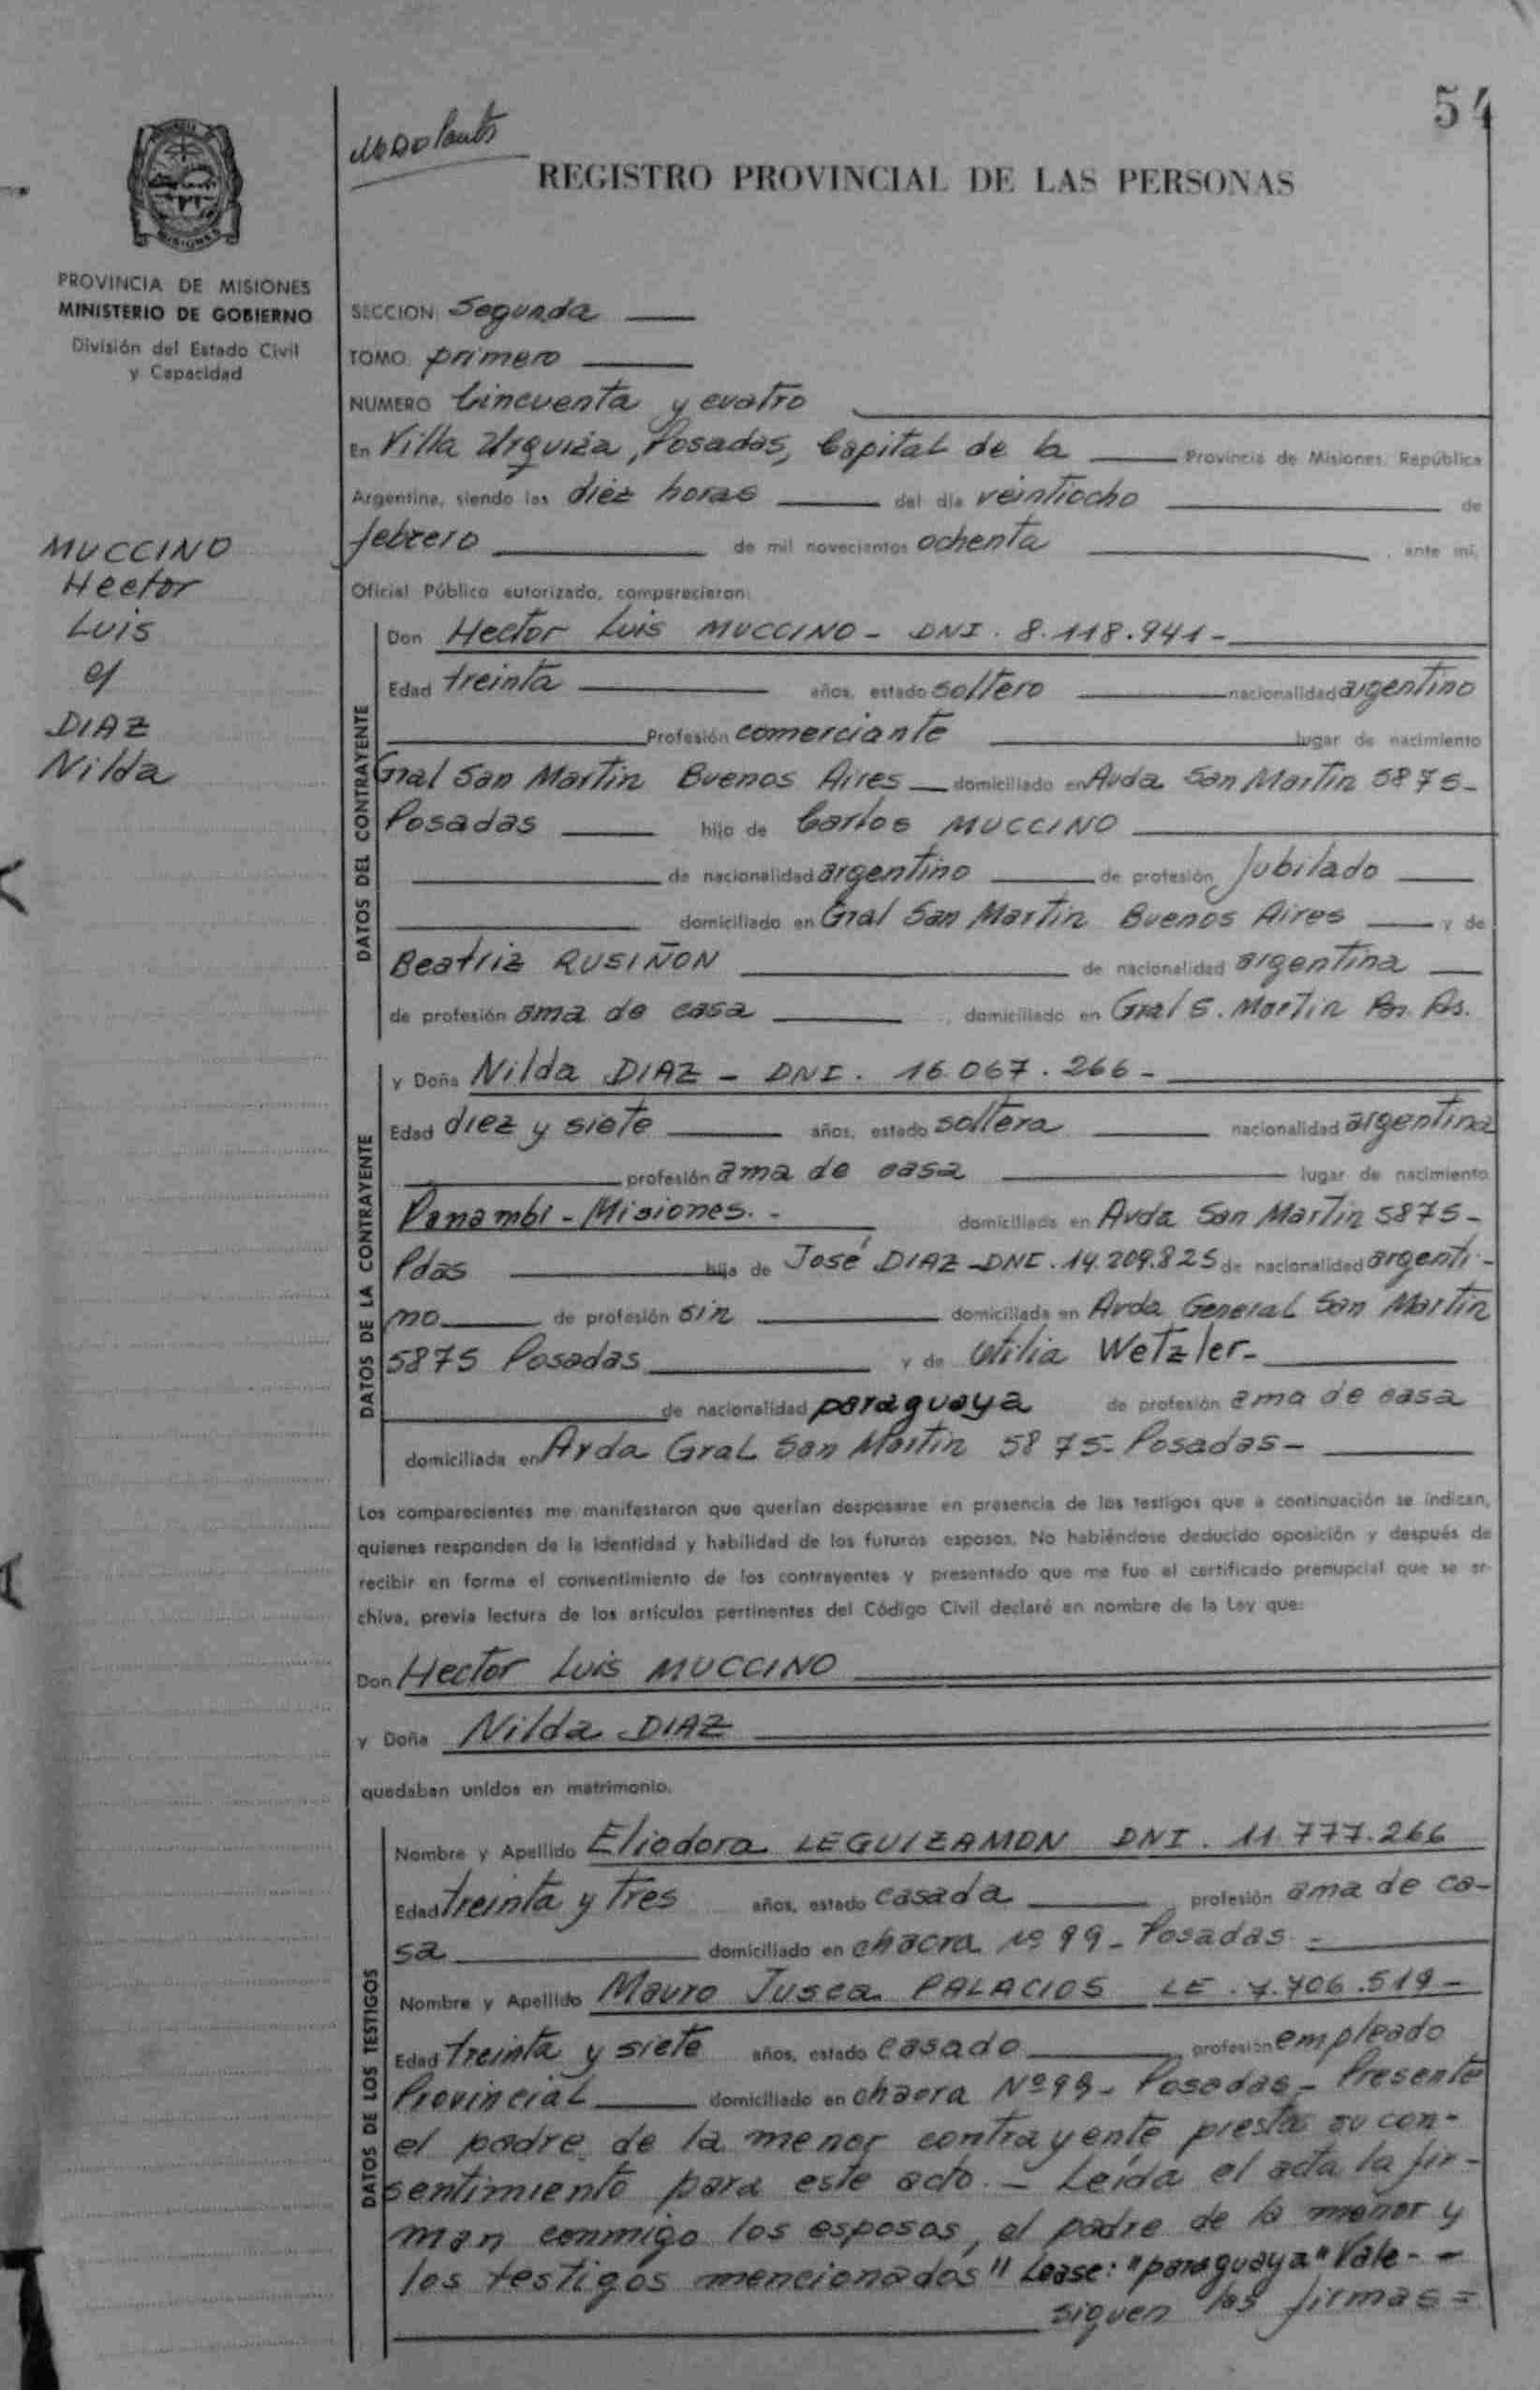 54
REGISTRO PROVINCIAL DE LAS PERSONAS
MISIONES
PROVINCIA DE MISIONES
MINISTERIO DE GOBIERNO
División del Estado Civil
y Capacidad
MUCCINO
Hector
Luis
c/
DIAZ
Nilda
SECCION Segunda
TOMO primero
NUMERO Cincuenta y cuatro
En Villa Urquiza, Posadas, Capital de la Provincia de Misiones, República
Argentina, siendo las diez horas del día veintiocho de
febrero de mil novecientos ochenta, ante mí,
Oficial Público autorizado, comparecieron:
DATOS DEL CONTRAYENTE
Don Hector Luis MUCCINO - DNI. 8.118.941-
Edad treinta años, estado soltero nacionalidad argentino
Profesión comerciante lugar de nacimiento
Gral San Martin Buenos Aires domiciliado en Avda San Martin 5875-
Posadas hijo de Carlos MUCCINO
de nacionalidad argentino de profesión Jubilado
domiciliado en Gral San Martin Buenos Aires y de
Beatriz RUSIÑON de nacionalidad argentina
de profesión ama de casa, domiciliado en Gral S. Martin Bs. As.
DATOS DE LA CONTRAYENTE
y Doña Nilda DIAZ - DNI. 16.067.266-
Edad diez y siete años, estado soltera nacionalidad argentina
profesión ama de casa lugar de nacimiento
Panambi - Misiones. - domiciliada en Avda San Martin 5875-
Pdas hija de José DIAZ - DNI. 14.209.825 de nacionalidad argenti-
no de profesión sin domiciliada en Avda General San Martin
5875 Posadas y de Otilia Wetzler-
de nacionalidad paraguaya de profesión ama de casa
domiciliada en Avda Gral San Martin 5875- Posadas-
Los comparecientes me manifestaron que querían desposarse en presencia de los testigos que a continuación se indican,
quienes responden de la identidad y habilidad de los futuros esposos. No habiéndose deducido oposición y después de
recibir en forma el consentimiento de los contrayentes y presentado que me fue el certificado prenupcial que se ar-
chiva, previa lectura de los artículos pertinentes del Código Civil declaré en nombre de la Ley que:
Don Hector Luis MUCCINO
y Doña Nilda DIAZ
quedaban unidos en matrimonio.
DATOS DE LOS TESTIGOS
Nombre y Apellido Eliodora LEGUIZAMON DNI. 11.777.266
Edad treinta y tres años, estado casada profesión ama de ca-
sa domiciliado en chacra Nº 99- Posadas.-
Nombre y Apellido Mauro Jusea PALACIOS LE. 7.706.519-
Edad treinta y siete años, estado casado profesión empleado
Provincial domiciliado en chacra Nº 99- Posadas- Presente
el padre de la menor contrayente presta su con-
sentimiento para este acto.- Leída el acta la fir-
man conmigo los esposos, el padre de la menor y
los testigos mencionados" Lease: "paraguaya" Vale--
siguen las firmas=